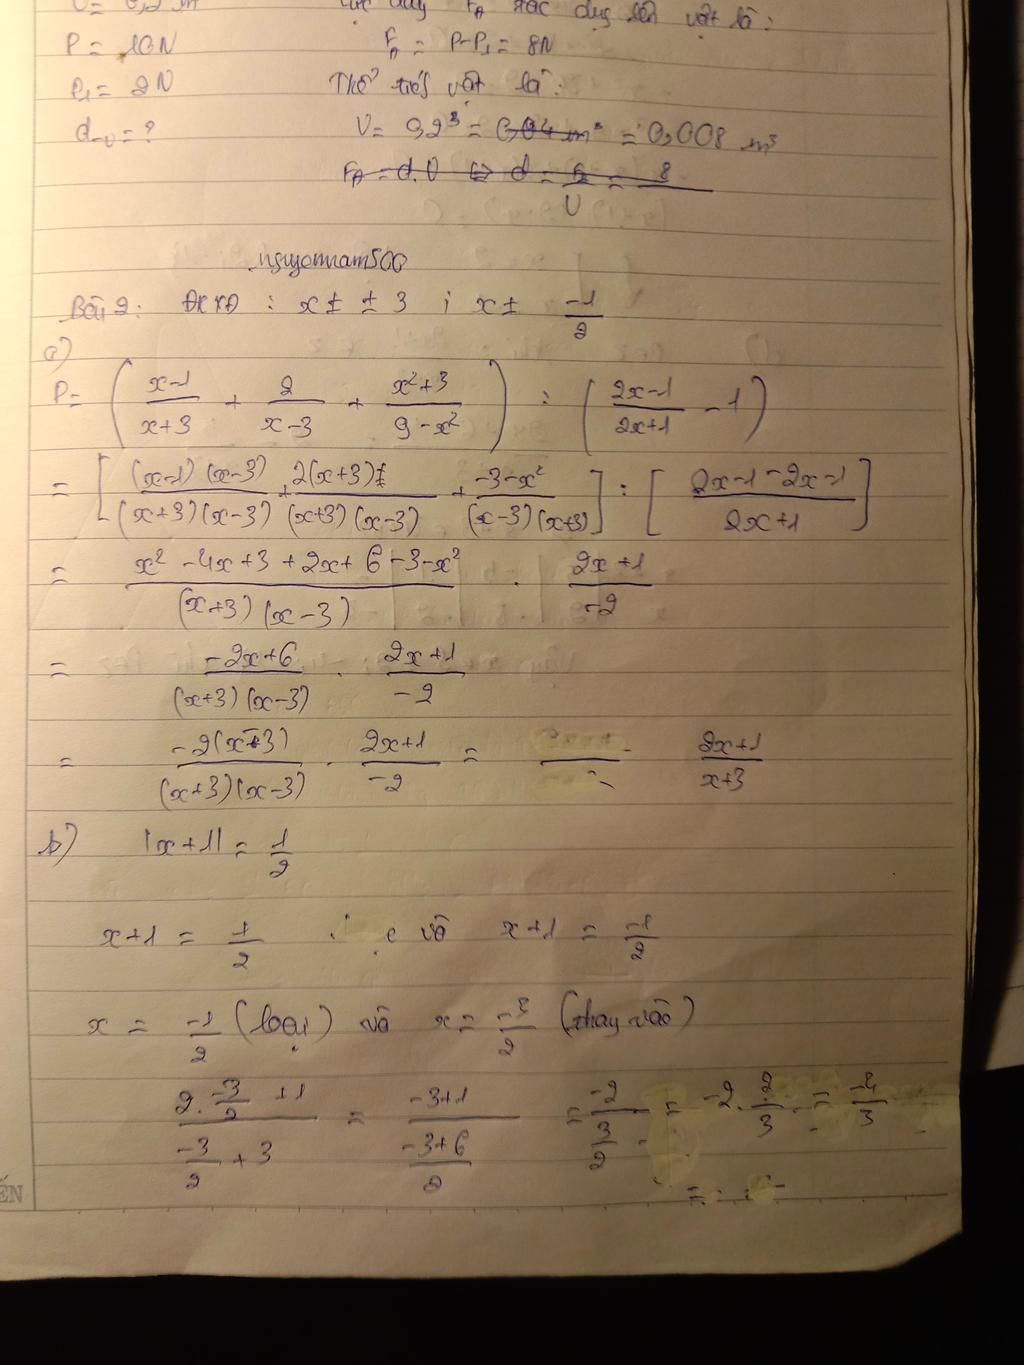 P = 10N F_A = P-P₁ = 8N
P₁ = 2N Thể tích vật là:
d_v = ? V = 0,2³ = 0,04 m³ = 0,008 m³
F_A = d.V ⇔ d = F_A/V = 8
nguyennam500
Bài 2: ĐKXĐ : x ± ± 3 ; x ± -1/2
a)
P = ( (x-1)/(x+3) + 2/(x-3) + (x²+3)/(9-x²) ) : ( (2x-1)/(2x+1) - 1 )
= [ (x-1)(x-3)/((x+3)(x-3)) + 2(x+3)/((x+3)(x-3)) + (-3-x²)/((x-3)(x+3)) ] : [ (2x-1-2x-1)/(2x+1) ]
= (x² -4x+3 +2x+6 -3-x²)/((x+3)(x-3)) . (2x+1)/(-2)
= (-2x+6)/((x+3)(x-3)) . (2x+1)/(-2)
= -2(x-3)/((x+3)(x-3)) . (2x+1)/(-2) = (2x+1)/(x+3)
b) |x+1| = 1/2
x+1 = 1/2 và x+1 = -1/2
x = -1/2 (loại) và x = -3/2 (thay vào)
(2. -3/2 +1)/(-3/2 + 3) = (-3+1)/((-3+6)/2) = -2/(3/2) = -2 . 2/3 = -4/3
ẾN